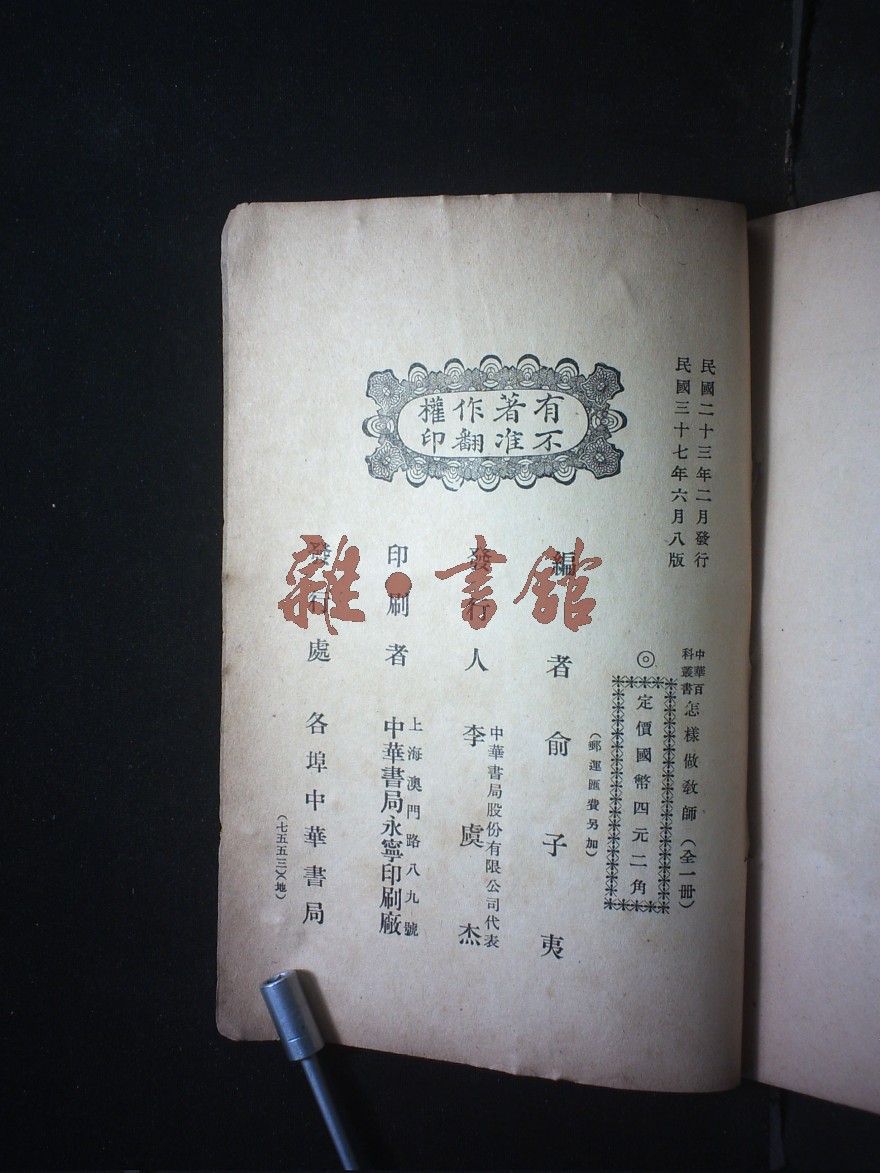 民國二十三年二月發行
民國三十七年六月八版
中華百科叢書
怎樣做教師(全一冊)
◎定價國幣四元二角
(郵運匯費另加)
有著作權
不准翻印
編者 俞子夷
發行人 李虞杰
中華書局股份有限公司代表
印刷者 中華書局永寧印刷廠
上海澳門路八九號
發行處 各埠中華書局
(七五五三)(地)
雜·書館